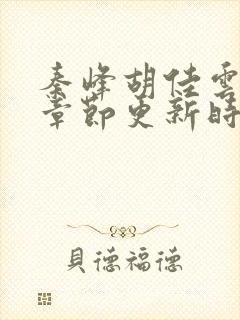 秦峰胡佳雲
章節更新時
貝德福德